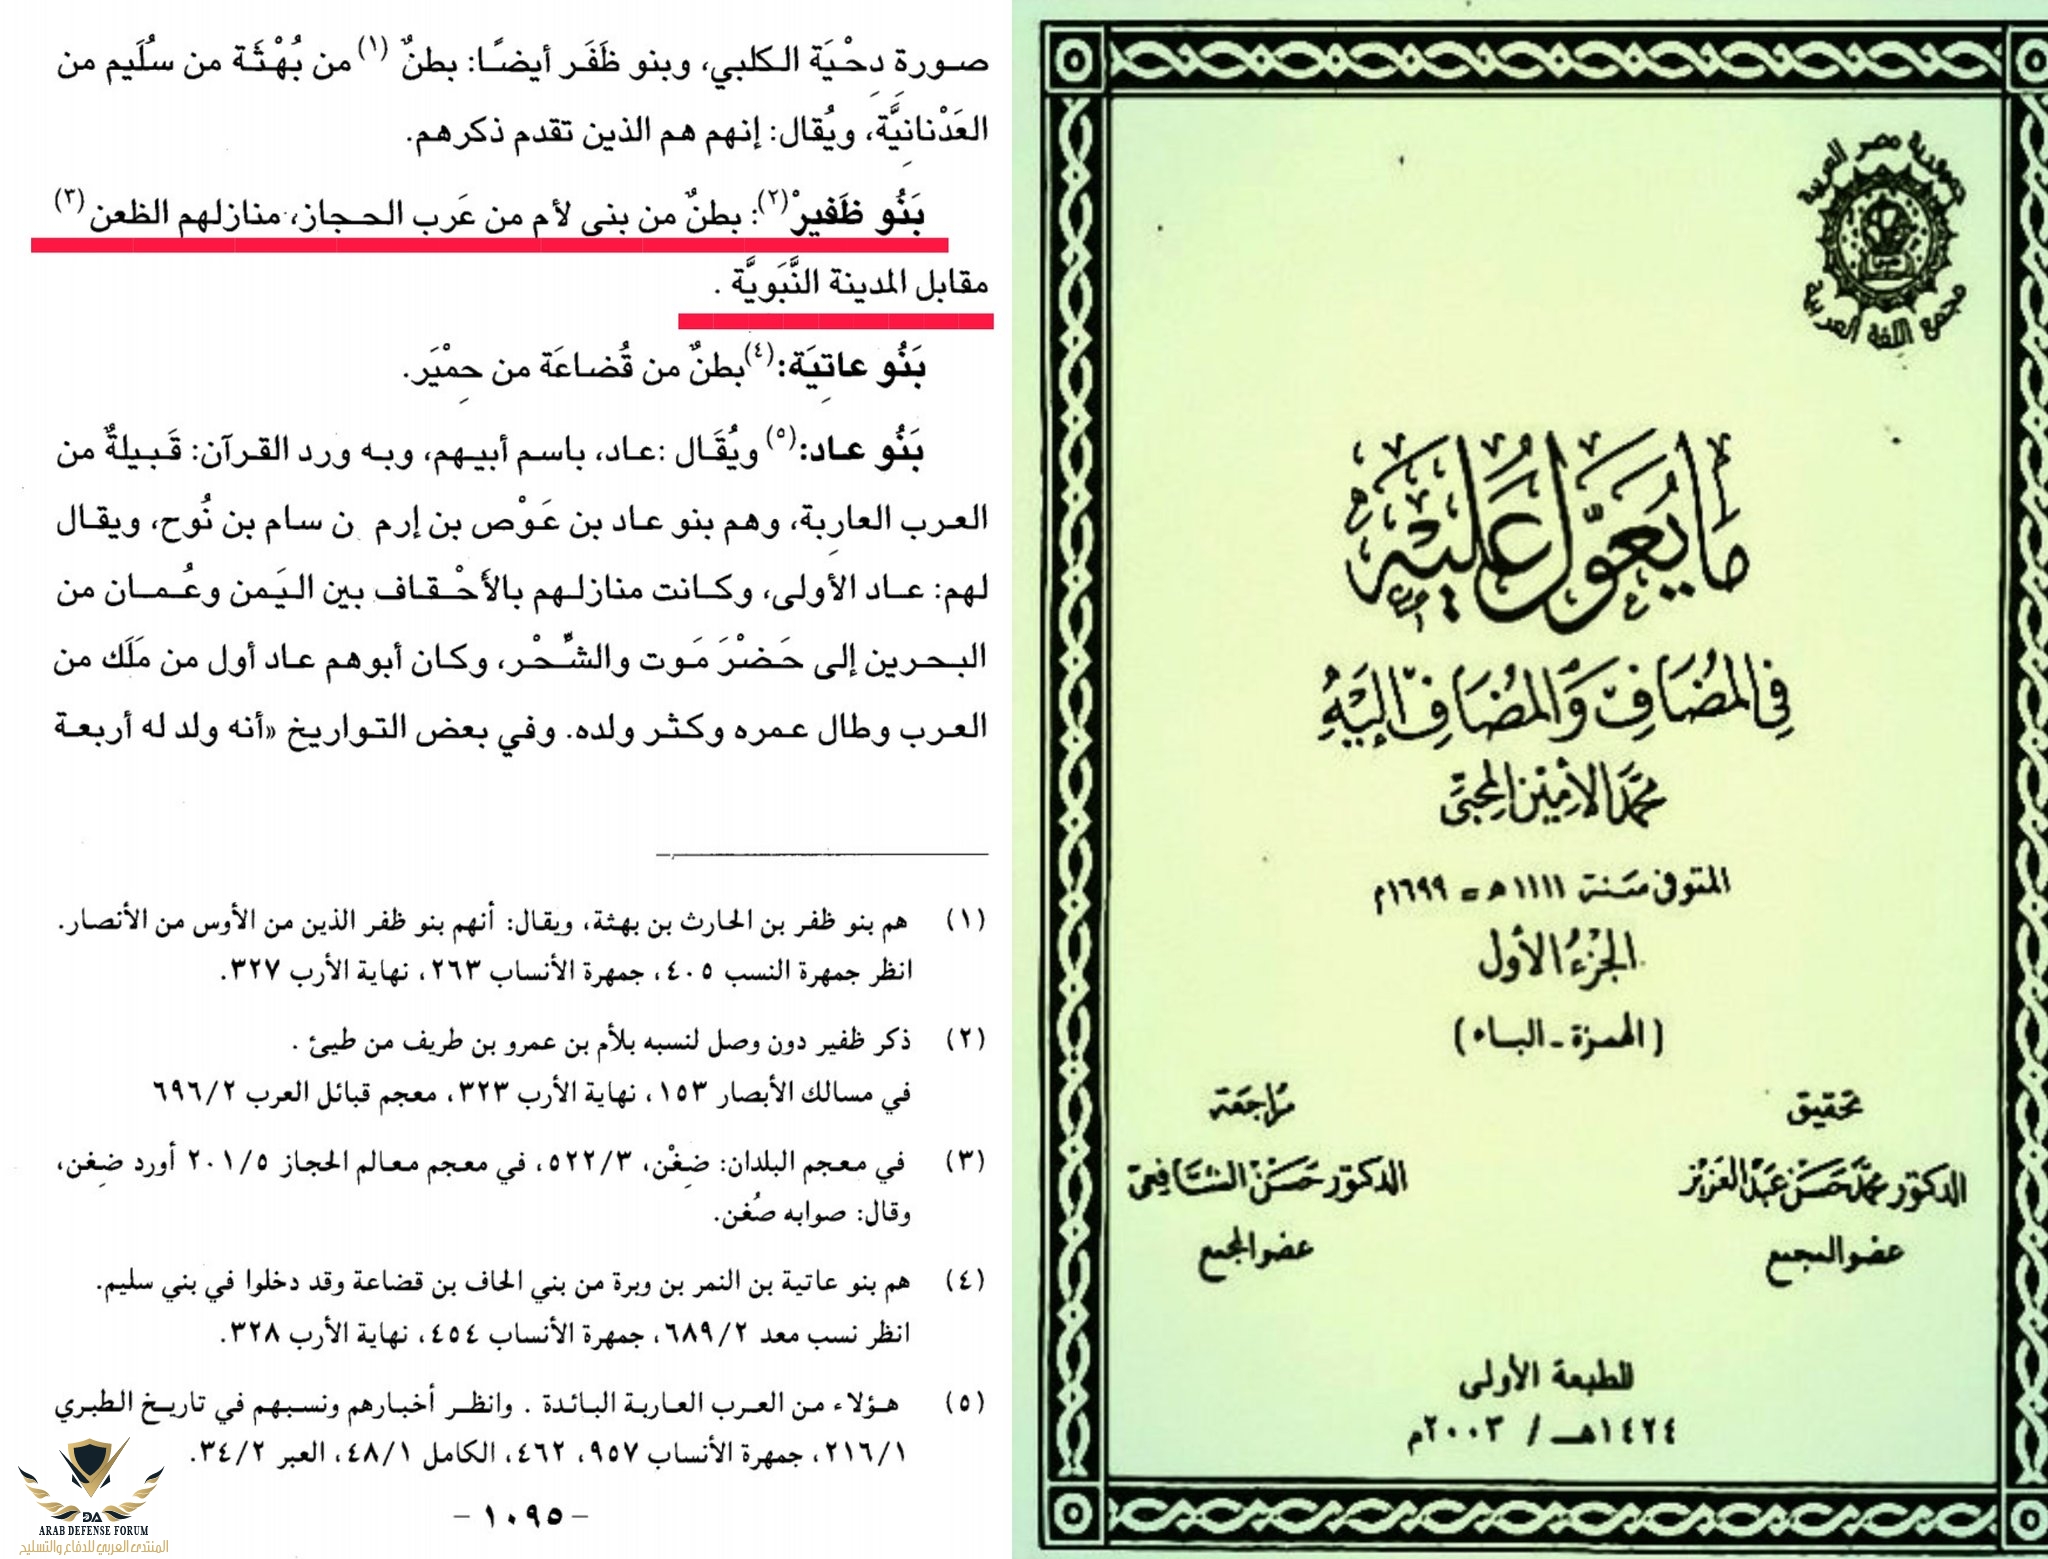 صورة دِحْيَة الكلبي، وبنو ظَفَر أيضًا: بطنٌ (١) من بُهْثَة من سُلَيم من
العَدْنانِيَّة، ويُقال: إنهم هم الذين تقدم ذكرهم.
بَنُو ظَفيرْ(٢): بطنٌ من بنى لأم من عَرب الحجاز، منازلهم الظعن(٣)
مقابل المدينة النَّبَويَّة .
بَنُو عاتِيَة:(٤) بطنٌ من قُضاعَة من حِمْيَر.
بَنُو عاد:(٥) ويُقَال :عاد، باسم أبيهم، وبه ورد القرآن: قَبيلةٌ من
العرب العارِبة، وهم بنو عاد بن عَوْص بن إرم ن سام بن نُوح، ويقال
لهم: عاد الأولى، وكانت منازلهم بالأَحْقاف بين اليَمن وعُمان من
البحرين إلى حَضْرَ مَوت والشِّحْر، وكان أبوهم عاد أول من مَلَك من
العرب وطال عمره وكثر ولده. وفي بعض التواريخ «أنه ولد له أربعة
(١) هم بنو ظفر بن الحارث بن بهثة، ويقال: أنهم بنو ظفر الذين من الأوس من الأنصار.
انظر جمهرة النسب ٤٠٥، جمهرة الأنساب ٢٦٣، نهاية الأرب ٣٢٧.
(٢) ذكر ظفير دون وصل لنسبه بلأم بن عمرو بن طريف من طيئ .
في مسالك الأبصار ١٥٣، نهاية الأرب ٣٢٣، معجم قبائل العرب ٦٩٦/٢
(٣) في معجم البلدان: ضِغْن، ٥٢٢/٣، في معجم معالم الحجاز ٢٠١/٥ أورد ضِغن،
وقال: صوابه صُغن.
(٤) هم بنو عاتية بن النمر بن وبرة من بني الحاف بن قضاعة وقد دخلوا في بني سليم.
انظر نسب معد ٦٨٩/٢، جمهرة الأنساب ٤٥٤، نهاية الأرب ٣٢٨.
(٥) هؤلاء من العرب العاربة البائدة . وانظر أخبارهم ونسبهم في تاريخ الطبري
٢١٦/١، جمهرة الأنساب ٩٥٧، ٤٦٢، الكامل ٤٨/١، العبر ٣٤/٢.
- ١٠٩٥ -
DA
ARAB DEFENSE FORUM
المنتدى العربي للدفاع والتسليح
جمهورية مصر العربية
مجمع اللغة العربية
مَا يُعَوَّل عَلَيْهِ
فِي المُضَافِ وَالمُضَافِ إِلَيْهِ
محمَّد الأمِين المحِبّى
المتوفى سنة ١١١١ هـ = ١٦٩٩م
الجزءُ الأول
(الهمزة - الباء)
تحقيق
الدكتور محمَّد حَسَن عَبْد العَزيز
عضو المجمع
مُراجَعَة
الدكتور حَسَن الشَّافِعى
عضو المجمع
الطبعة الأولى
١٤٢٤هـ / ٢٠٠٣م